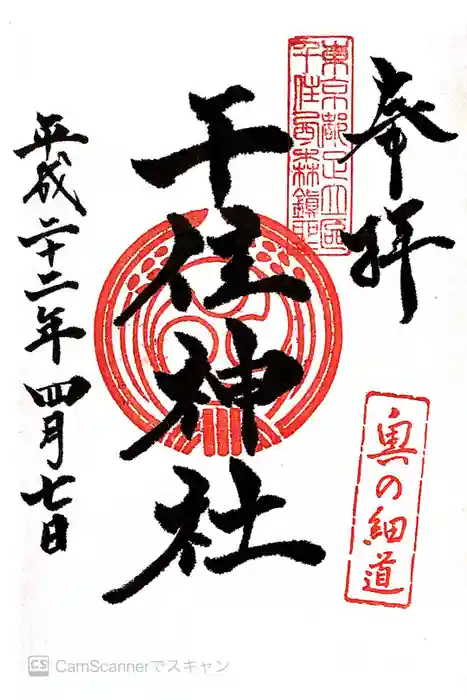 奉拝
東京都足立区
千住西森鎮印
奥の細道
千住神社
平成二十二年四月七日
CS CamScannerでスキャン